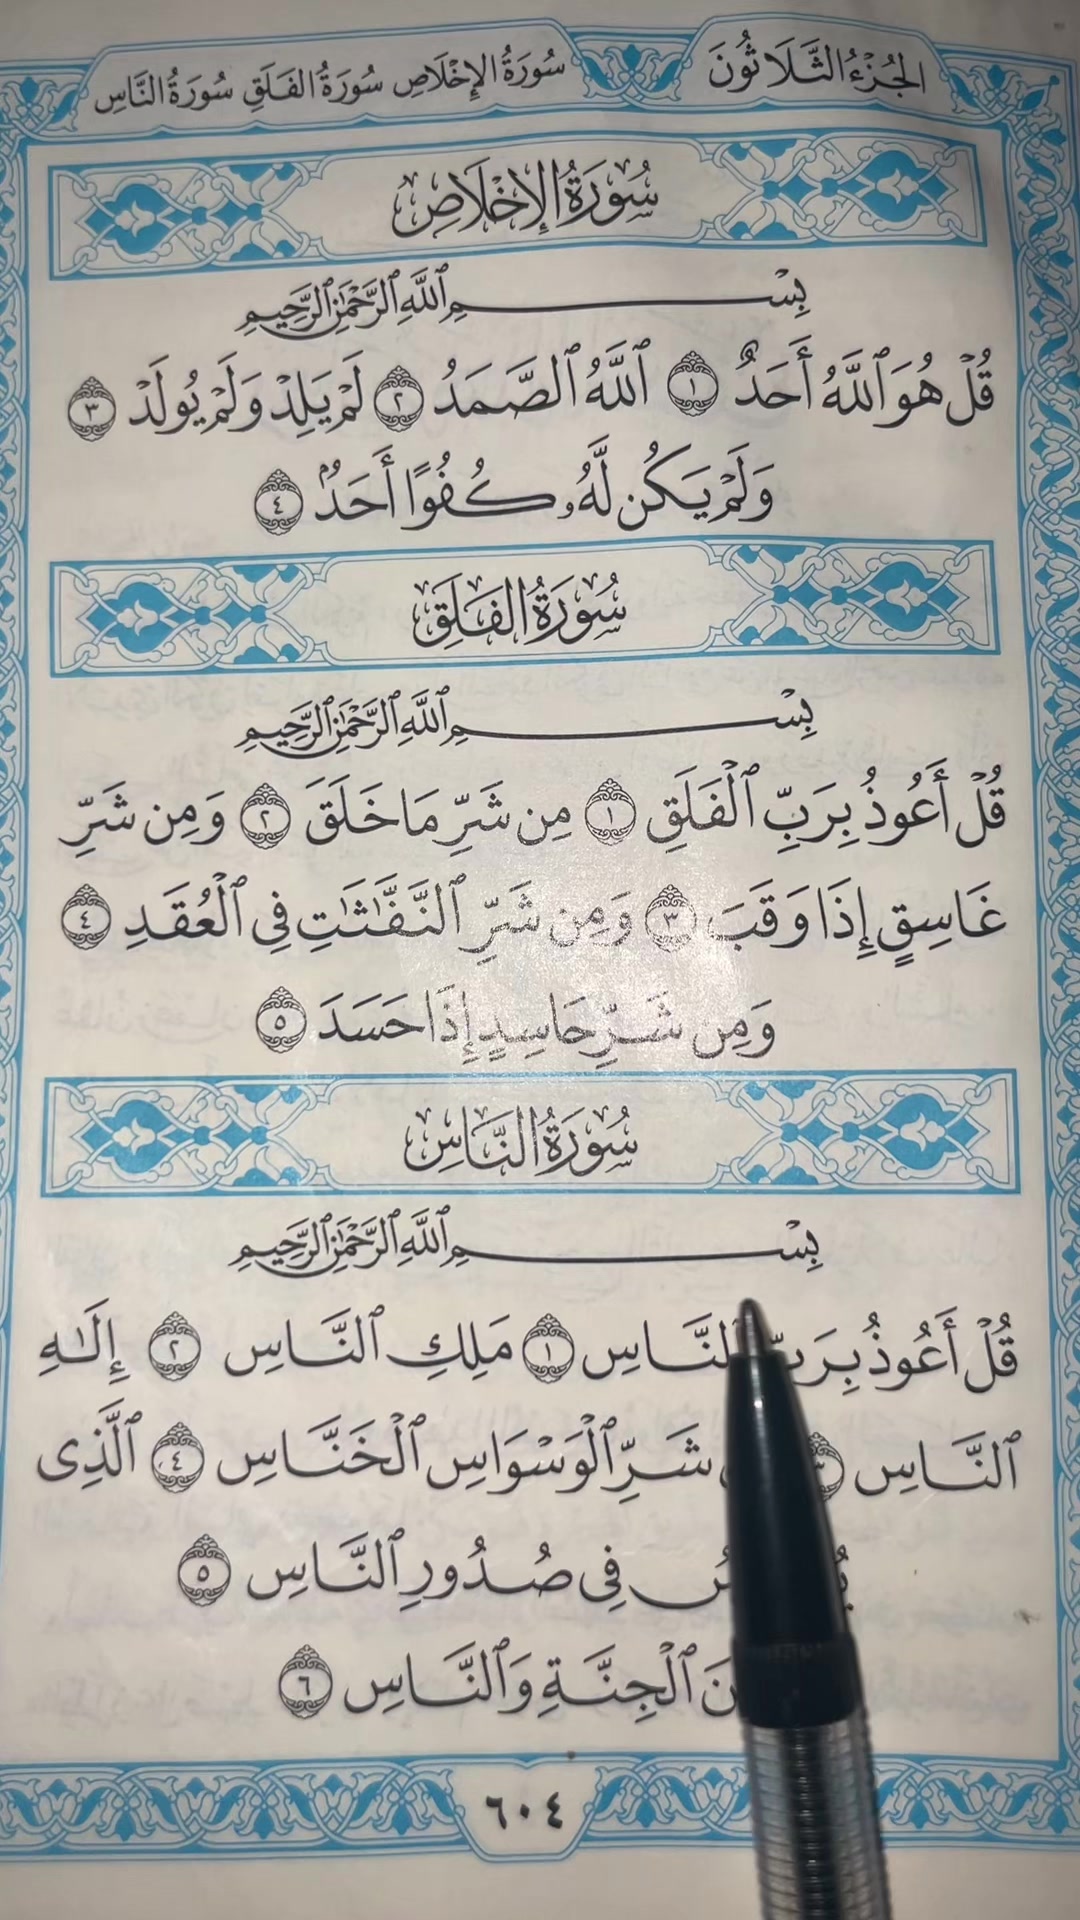 الجُزْءُ الثَّلَاثُونَ سُورَةُ الإِخْلَاصِ سُورَةُ الفَلَقِ سُورَةُ النَّاسِ
سُورَةُ الإِخْلَاصِ
بِسْمِ ٱللَّهِ ٱلرَّحْمَٰنِ ٱلرَّحِيمِ
قُلْ هُوَ ٱللَّهُ أَحَدٌ ١ ٱللَّهُ ٱلصَّمَدُ ٢ لَمْ يَلِدْ وَلَمْ يُولَدْ ٣
وَلَمْ يَكُن لَّهُۥ كُفُوًا أَحَدٌۢ ٤
سُورَةُ الفَلَقِ
بِسْمِ ٱللَّهِ ٱلرَّحْمَٰنِ ٱلرَّحِيمِ
قُلْ أَعُوذُ بِرَبِّ ٱلْفَلَقِ ١ مِن شَرِّ مَا خَلَقَ ٢ وَمِن شَرِّ
غَاسِقٍ إِذَا وَقَبَ ٣ وَمِن شَرِّ ٱلنَّفَّٰثَٰتِ فِى ٱلْعُقَدِ ٤
وَمِن شَرِّ حَاسِدٍ إِذَا حَسَدَ ٥
سُورَةُ النَّاسِ
بِسْمِ ٱللَّهِ ٱلرَّحْمَٰنِ ٱلرَّحِيمِ
قُلْ أَعُوذُ بِرَبِّ ٱلنَّاسِ ١ مَلِكِ ٱلنَّاسِ ٢ إِلَٰهِ
ٱلنَّاسِ ٣ شَرِّ ٱلْوَسْوَاسِ ٱلْخَنَّاسِ ٤ ٱلَّذِى
فِى صُدُورِ ٱلنَّاسِ ٥
ٱلْجِنَّةِ وَٱلنَّاسِ ٦
٦٠٤